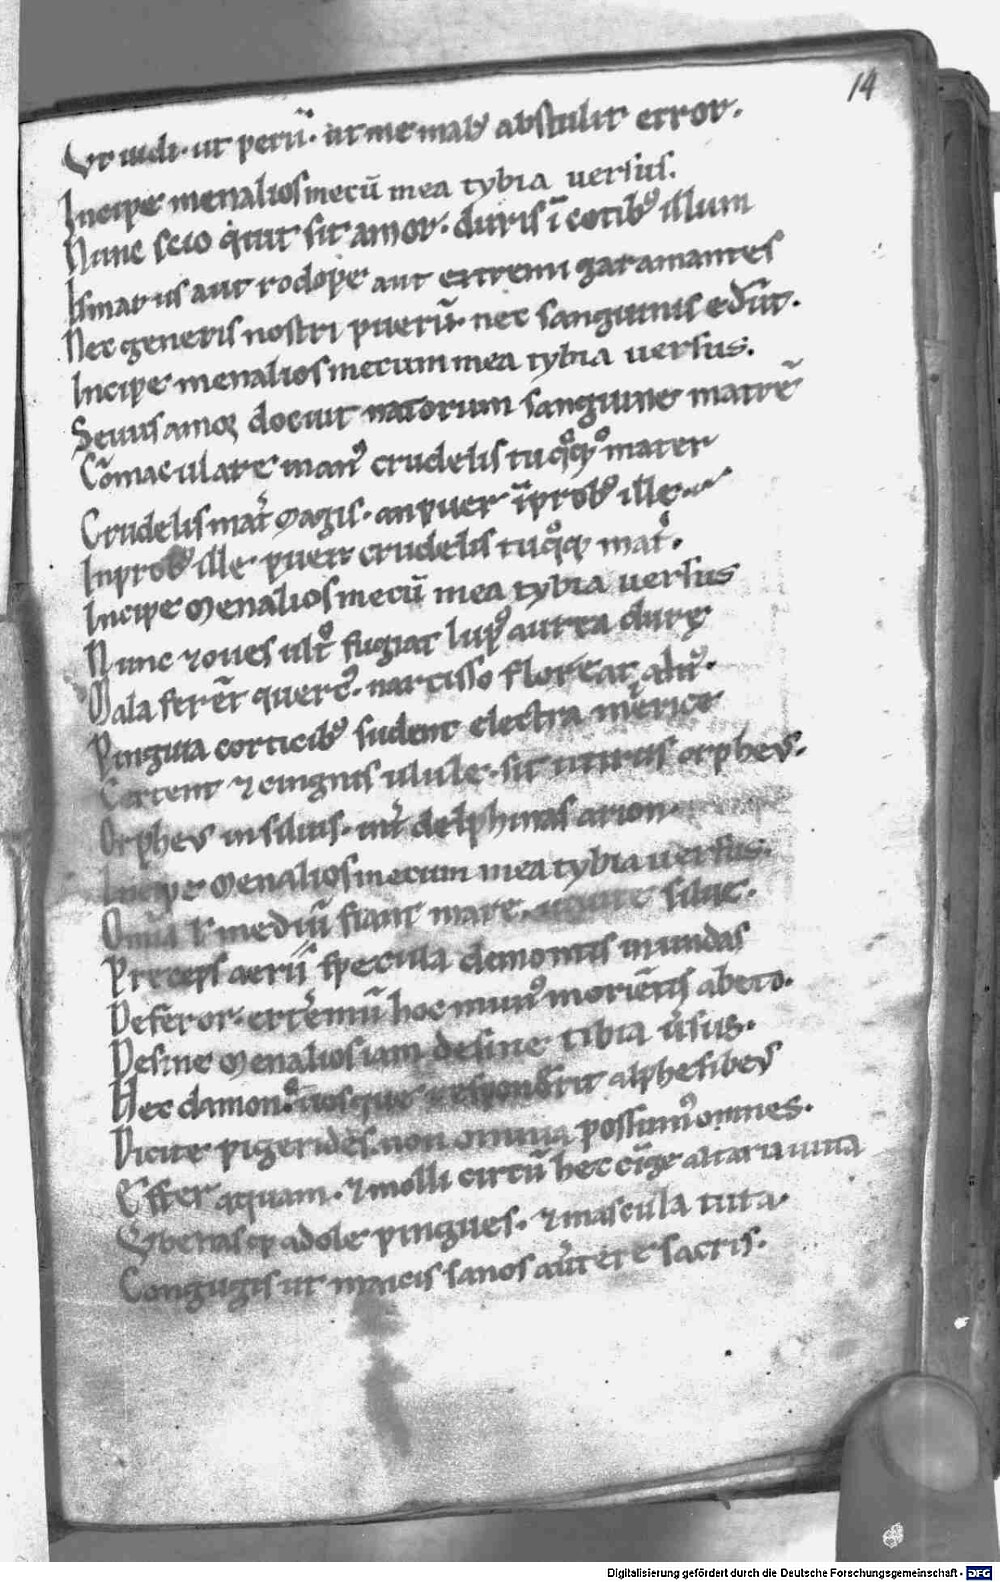 14
Vt uidi. ut perii᷑. ut me malꝰ abstulit error.
Incipe menalios mecū mea tybia uersus.
Nunc scio qͥuit sit amor. duris ī cotibꝰ illum
Ismarus aut rodope aut extremi garamantes
Nec generis nostri puerū nec sanguinis edūt.
Incipe menalios mecum mea tybia uersus.
Seuus amoꝝ docuit natorum sanguine matrē
Cōmaculare manꝰ crudelis tu qͦqꝫ mater
Crudelis mat̄ magis. an puer īprobꝰ ille
Inprobꝰ ille puer crudelis tu qͦqꝫ mat̄.
Incipe Menalios mecū mea tybia uersus
Nunc ⁊ oues ult̊ fugiat lupꝰ aurea durę
Mala ferēt quercꝰ. narcisso floreat alnꝰ.
Pinguia corticibꝰ sudent electra mirice
Certent ⁊ cingnis ulule. sit titirus orpheꝰ.
Orpheꝰ in siluis. int̄ delphinas arion.
Incipe Menalios mecum mea tybia uersus.
Omīa ł mediū fiant mare. silue.
Preceps aerii specula de montis in undas
Deferor. extᵉmū hoc munꝰ moriētis abeto.
Desine Menalios iam desine tibia ūsus.
Hec damon. uos que respondᵉit alphesibeꝰ
Dicite pigerides. non omnia possumꝰ omnes.
Effer aquam. ⁊ molli circū hec cīge altaria uitta
Vbenasqꝫ adole pingues. ⁊ mascula tuta.
Congugis ut maicis sanos aūtere sacris.
Digitalisierung gefördert durch die Deutsche Forschungsgemeinschaft - DFG